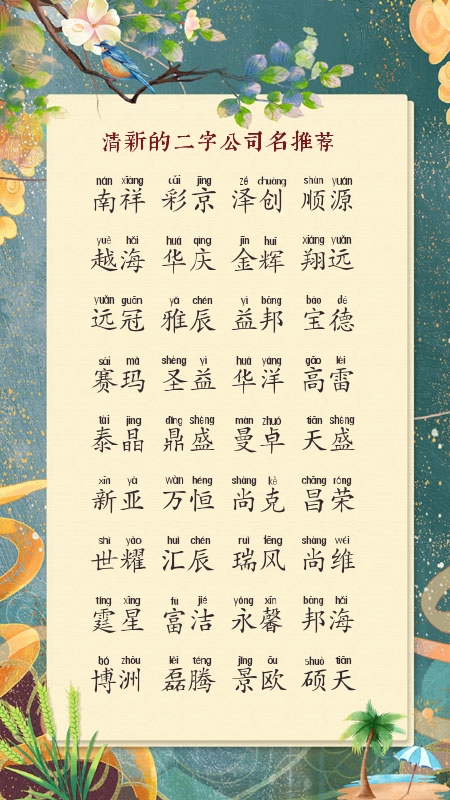 清新的二字公司名推荐
nán xiáng cǎi jīng zé chuàng shùn yuán
南祥 彩京 泽创 顺源
yuè hǎi huá qìng jīn huī xiáng yuǎn
越海 华庆 金辉 翔远
yuǎn guān yǎ chén yì bāng bǎo dé
远冠 雅辰 益邦 宝德
sài mǎ shèng yì huá yáng gāo léi
赛玛 圣益 华洋 高雷
tài jīng dǐng shèng màn zhuó tiān shèng
泰晶 鼎盛 曼卓 天盛
xīn yà wàn héng shàng kè chāng róng
新亚 万恒 尚克 昌荣
shì yào huì chén ruì fēng shàng wéi
世耀 汇辰 瑞风 尚维
tíng xīng fù jié yǒng xīn bāng hǎi
霆星 富洁 永馨 邦海
bó zhōu lěi téng jǐng ōu shuò tiān
博洲 磊腾 景欧 硕天